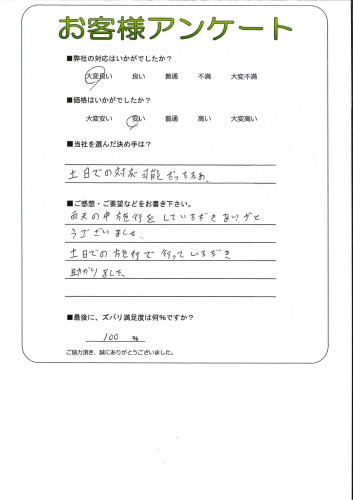 お客様アンケート
■弊社の対応はいかがでしたか？
大変良い 良い 普通 不満 大変不満
■価格はいかがでしたか？
大変安い 安い 普通 高い 大変高い
■当社を選んだ決め手は？
土日での対応可能だった為。
■ご感想・ご要望などをお書き下さい。
雨天の中施行をしていただきありがと
うございました。
土日での施行で行っていただき
助かりました。
■最後に、ズバリ満足度は何%ですか？
100 %
ご協力頂き、誠にありがとうございました。